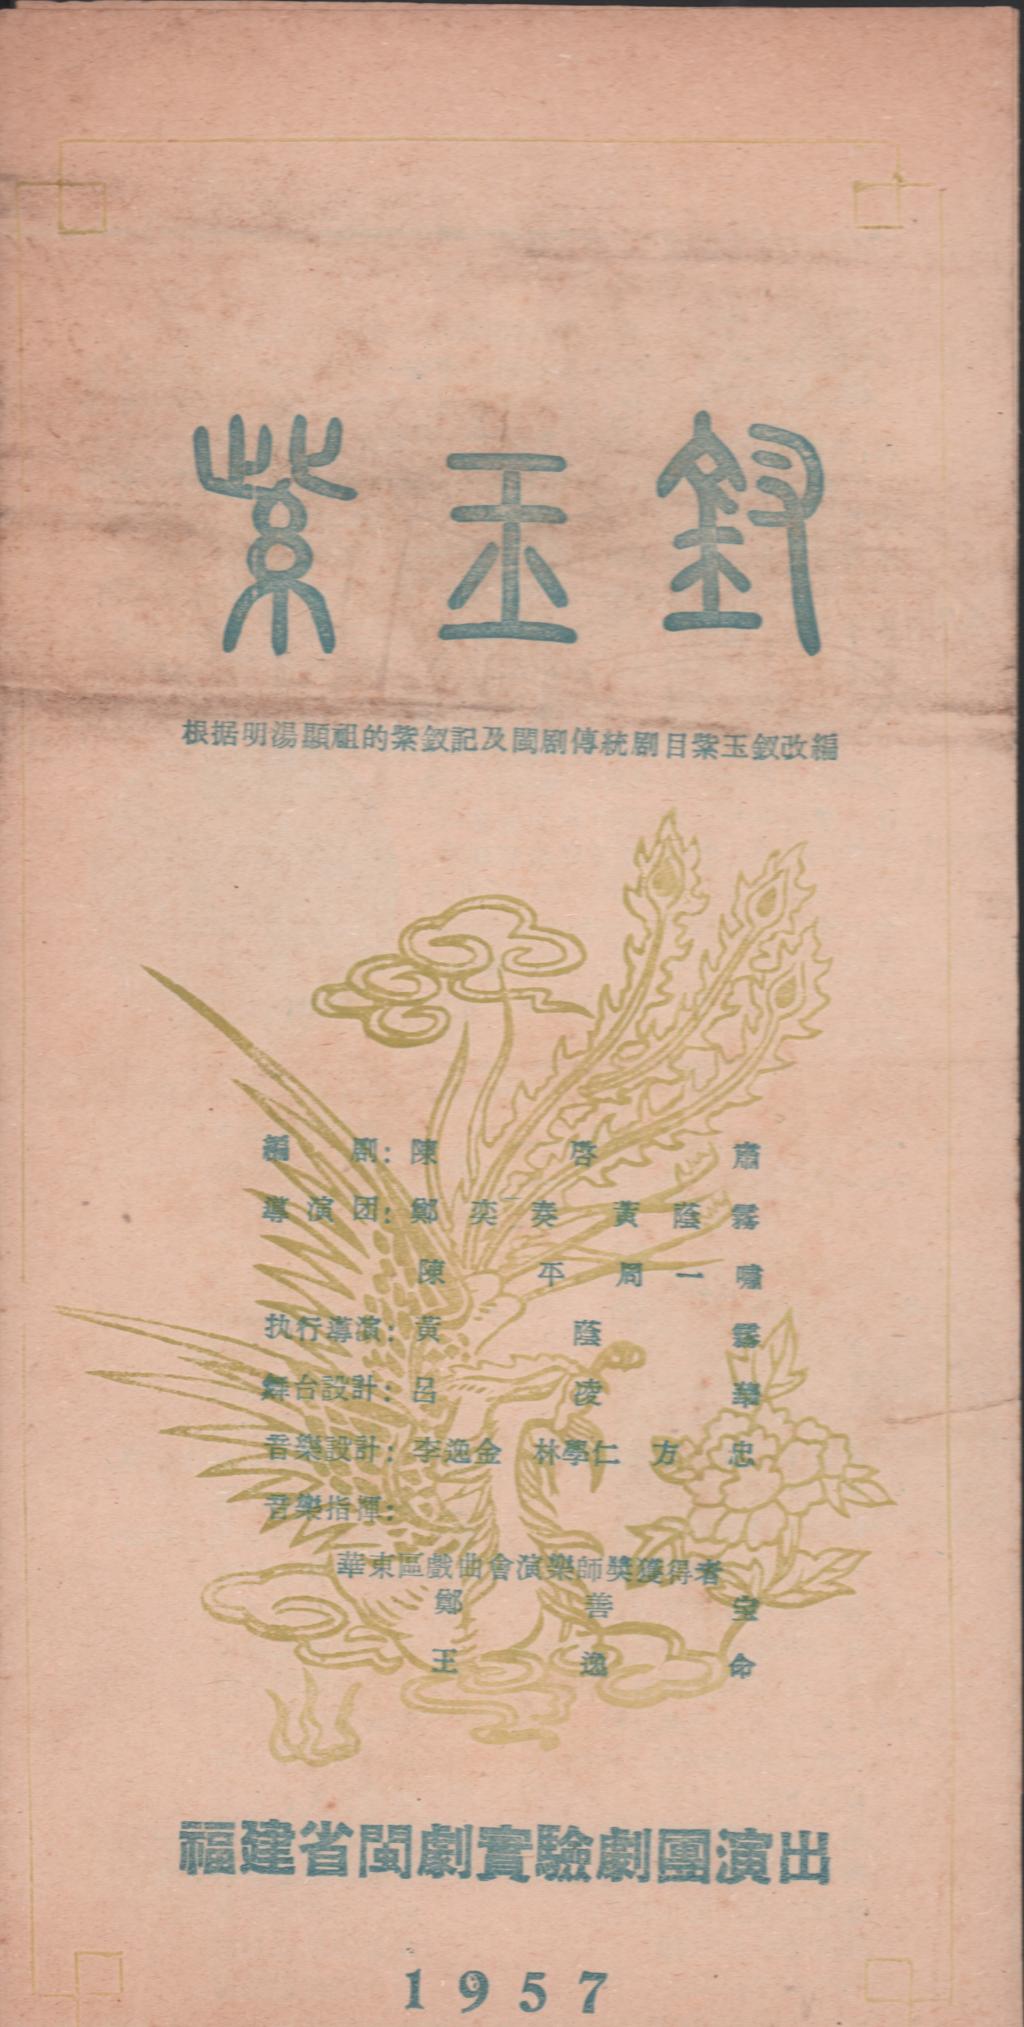 紫玉釵
根据明湯顯祖的紫釵記及閩剧傳統剧目紫玉釵改編
編剧：陳啓肅
導演团：鄭奕奏 黃蔭霧
陳平 周一嘯
执行導演：黃蔭霧
舞台設計：呂凌華
音樂設計：李逸金 林學仁 方忠
音樂指揮：
華東區戲曲會演樂師獎獲得者
鄭善宝
王逸命
福建省閩劇實驗劇團演出
1957